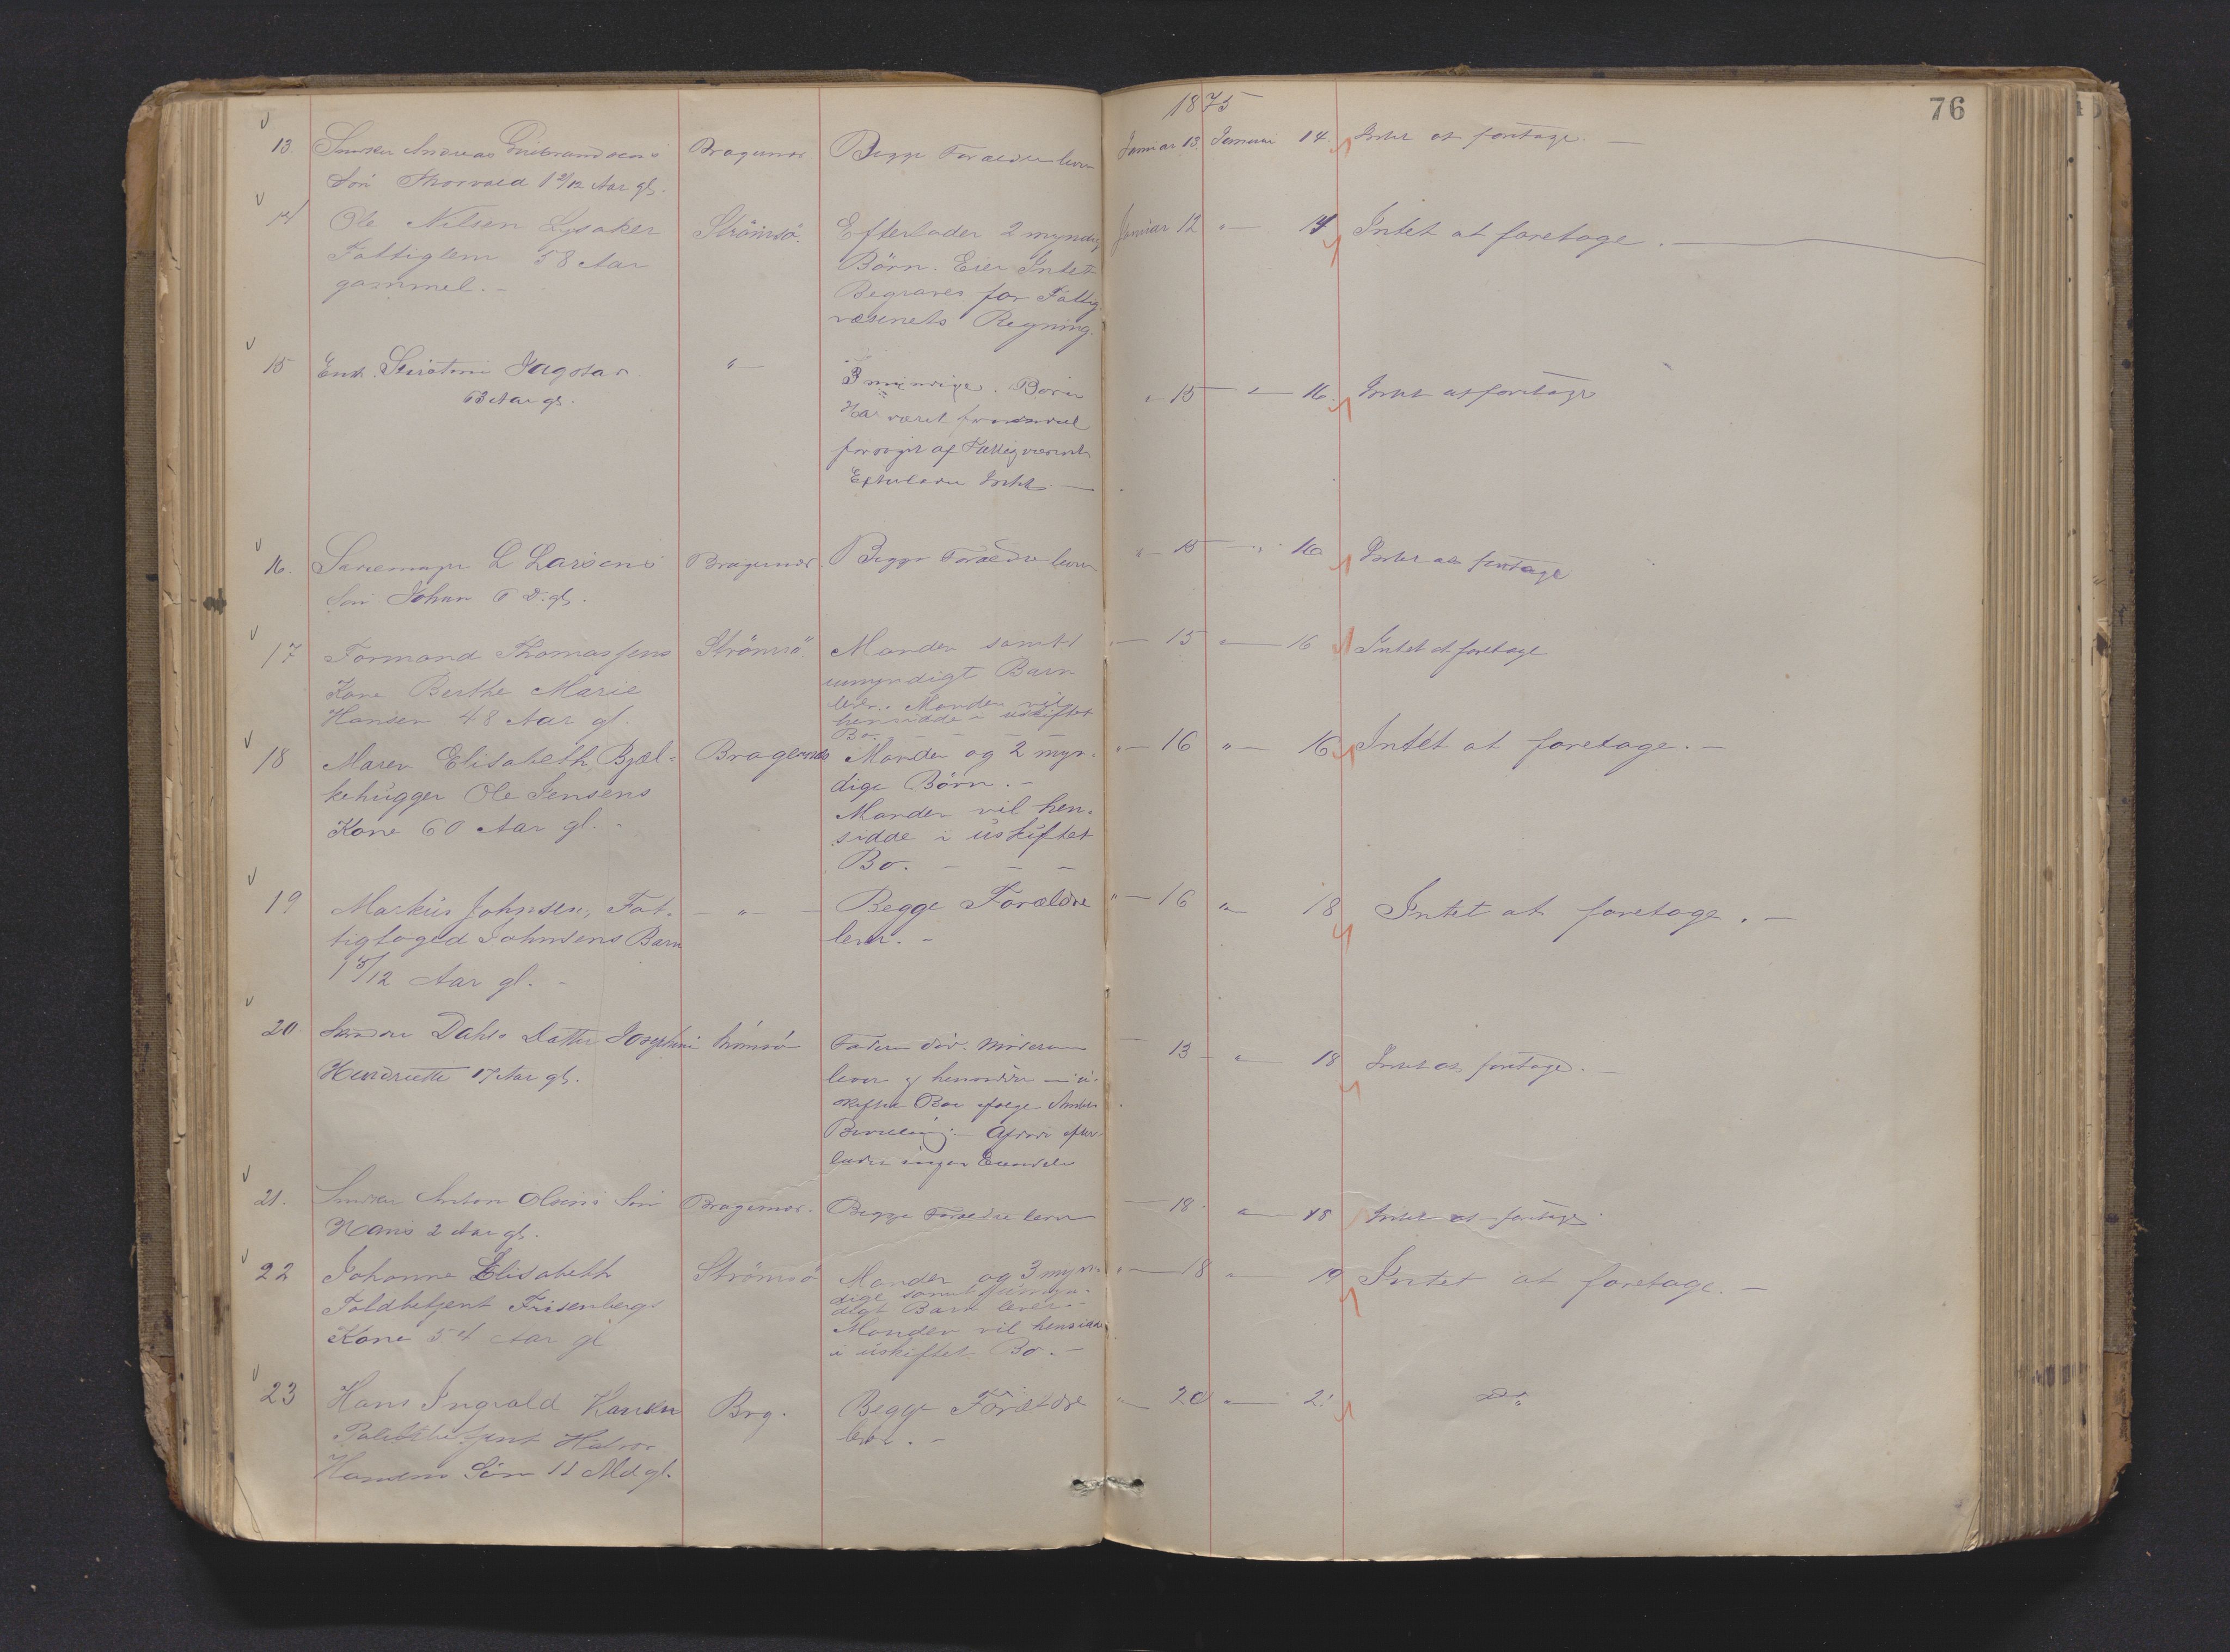 1875
76
13. Snedker Andreas Gulbrandsens Bragernæs Begge Forældre lever Januar 13. Januar 14 Intet at foretage. —
Søn Thorvald 1 2/12 Aar gl.
14 Ole Nilsen Lysaker Strömsö. Efterlader 2 myndig Januar 12 " — 14 Intet at foretage. —
Fattiglem 58 Aar Börn. Eier Intet
gammel. - Begraves for Fattig
væsenets Regning.
15 Enk. Jagosar " — 3 myndige Børn " 15 " — 16. Intet at foretage
73 Aar gl. Har været
forsørget af Fattigvæsenet
Efterlader Intet. —
16. L Larsens Bragernæs Begge Forældre lever " — 15 — " 16 Intet at foretage
Søn Johan 6 D. gl.
17 Formand Thomassens Strömsö. Manden samt 1 " — 15 " — 16 Intet at foretage
Kone Berthe Marie umyndigt Barn
Hansen 48 Aar gl. lever. Manden vil
hensidde i uskiftet
Bo. - - - -
18 Maren Elisabeth Bjæl- Bragernæs Manden og 2 myn- " — 16 " — 16 Intet at foretage. —
kehugger Ole Jensens dige Börn. -
Kone 60 Aar gl. - Manden vil hen-
sidde i uskiftet
Bo. - - -
19 Markus Johnsen, Fat- — " — Begge Forældre " — 16 " — 18 Intet at foretage. —
tigfoged Johnsens Barn lever. -
1 5/12 Aar gl. -
20 Dahls Datter Josephine Strömsö Faderen död. Moderen — 13 — " — 18 Intet at foretage. -
Hendriette 17 Aar gl. lever og hensidder i u-
skiftet Bo ifølge
Bevilling. - Afdøde efter-
lader ingen Eiendele
21. Snedker Anton Olsens Søn Bragernæs. Begge Forældre lever — 18. " — 18 Intet at foretage
Hans 2 Aar gl.
22 Johanne Elisabeth Strömsö Manden og 3 myn- " — 18 " — 19 Intet at foretage. —
Toldbetjent Frisenbergs dige samt 1 umyn-
Kone 54 Aar gl digt Barn lever. -
Manden vil hensidde
i uskiftet Bo. -
23 Hans Ingvald Hansen Brg. Begge Forældre " — 20 " — 21 do
Politibetjent Halvor lever. -
Hansens Søn 11 Md gl.